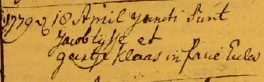 1779 18 April juncti sunt
Jacob et
geertje Klaas in facie Eccles